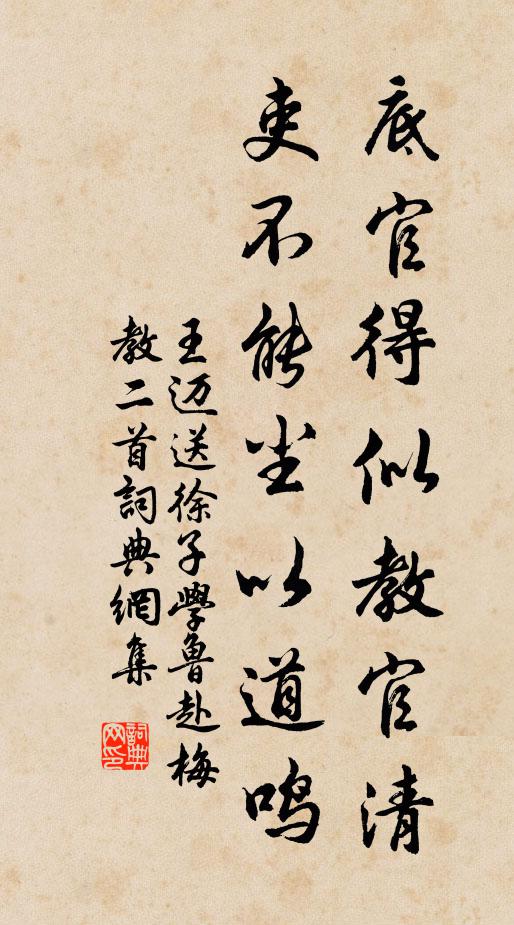 底官得似教官清
吏不能尘以道鸣
王迈送徐子学鲁赴梅
教二首詞典網集
詞典网印